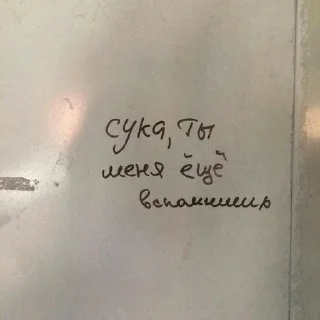 сука, ты
меня ёщё
вспомнишь